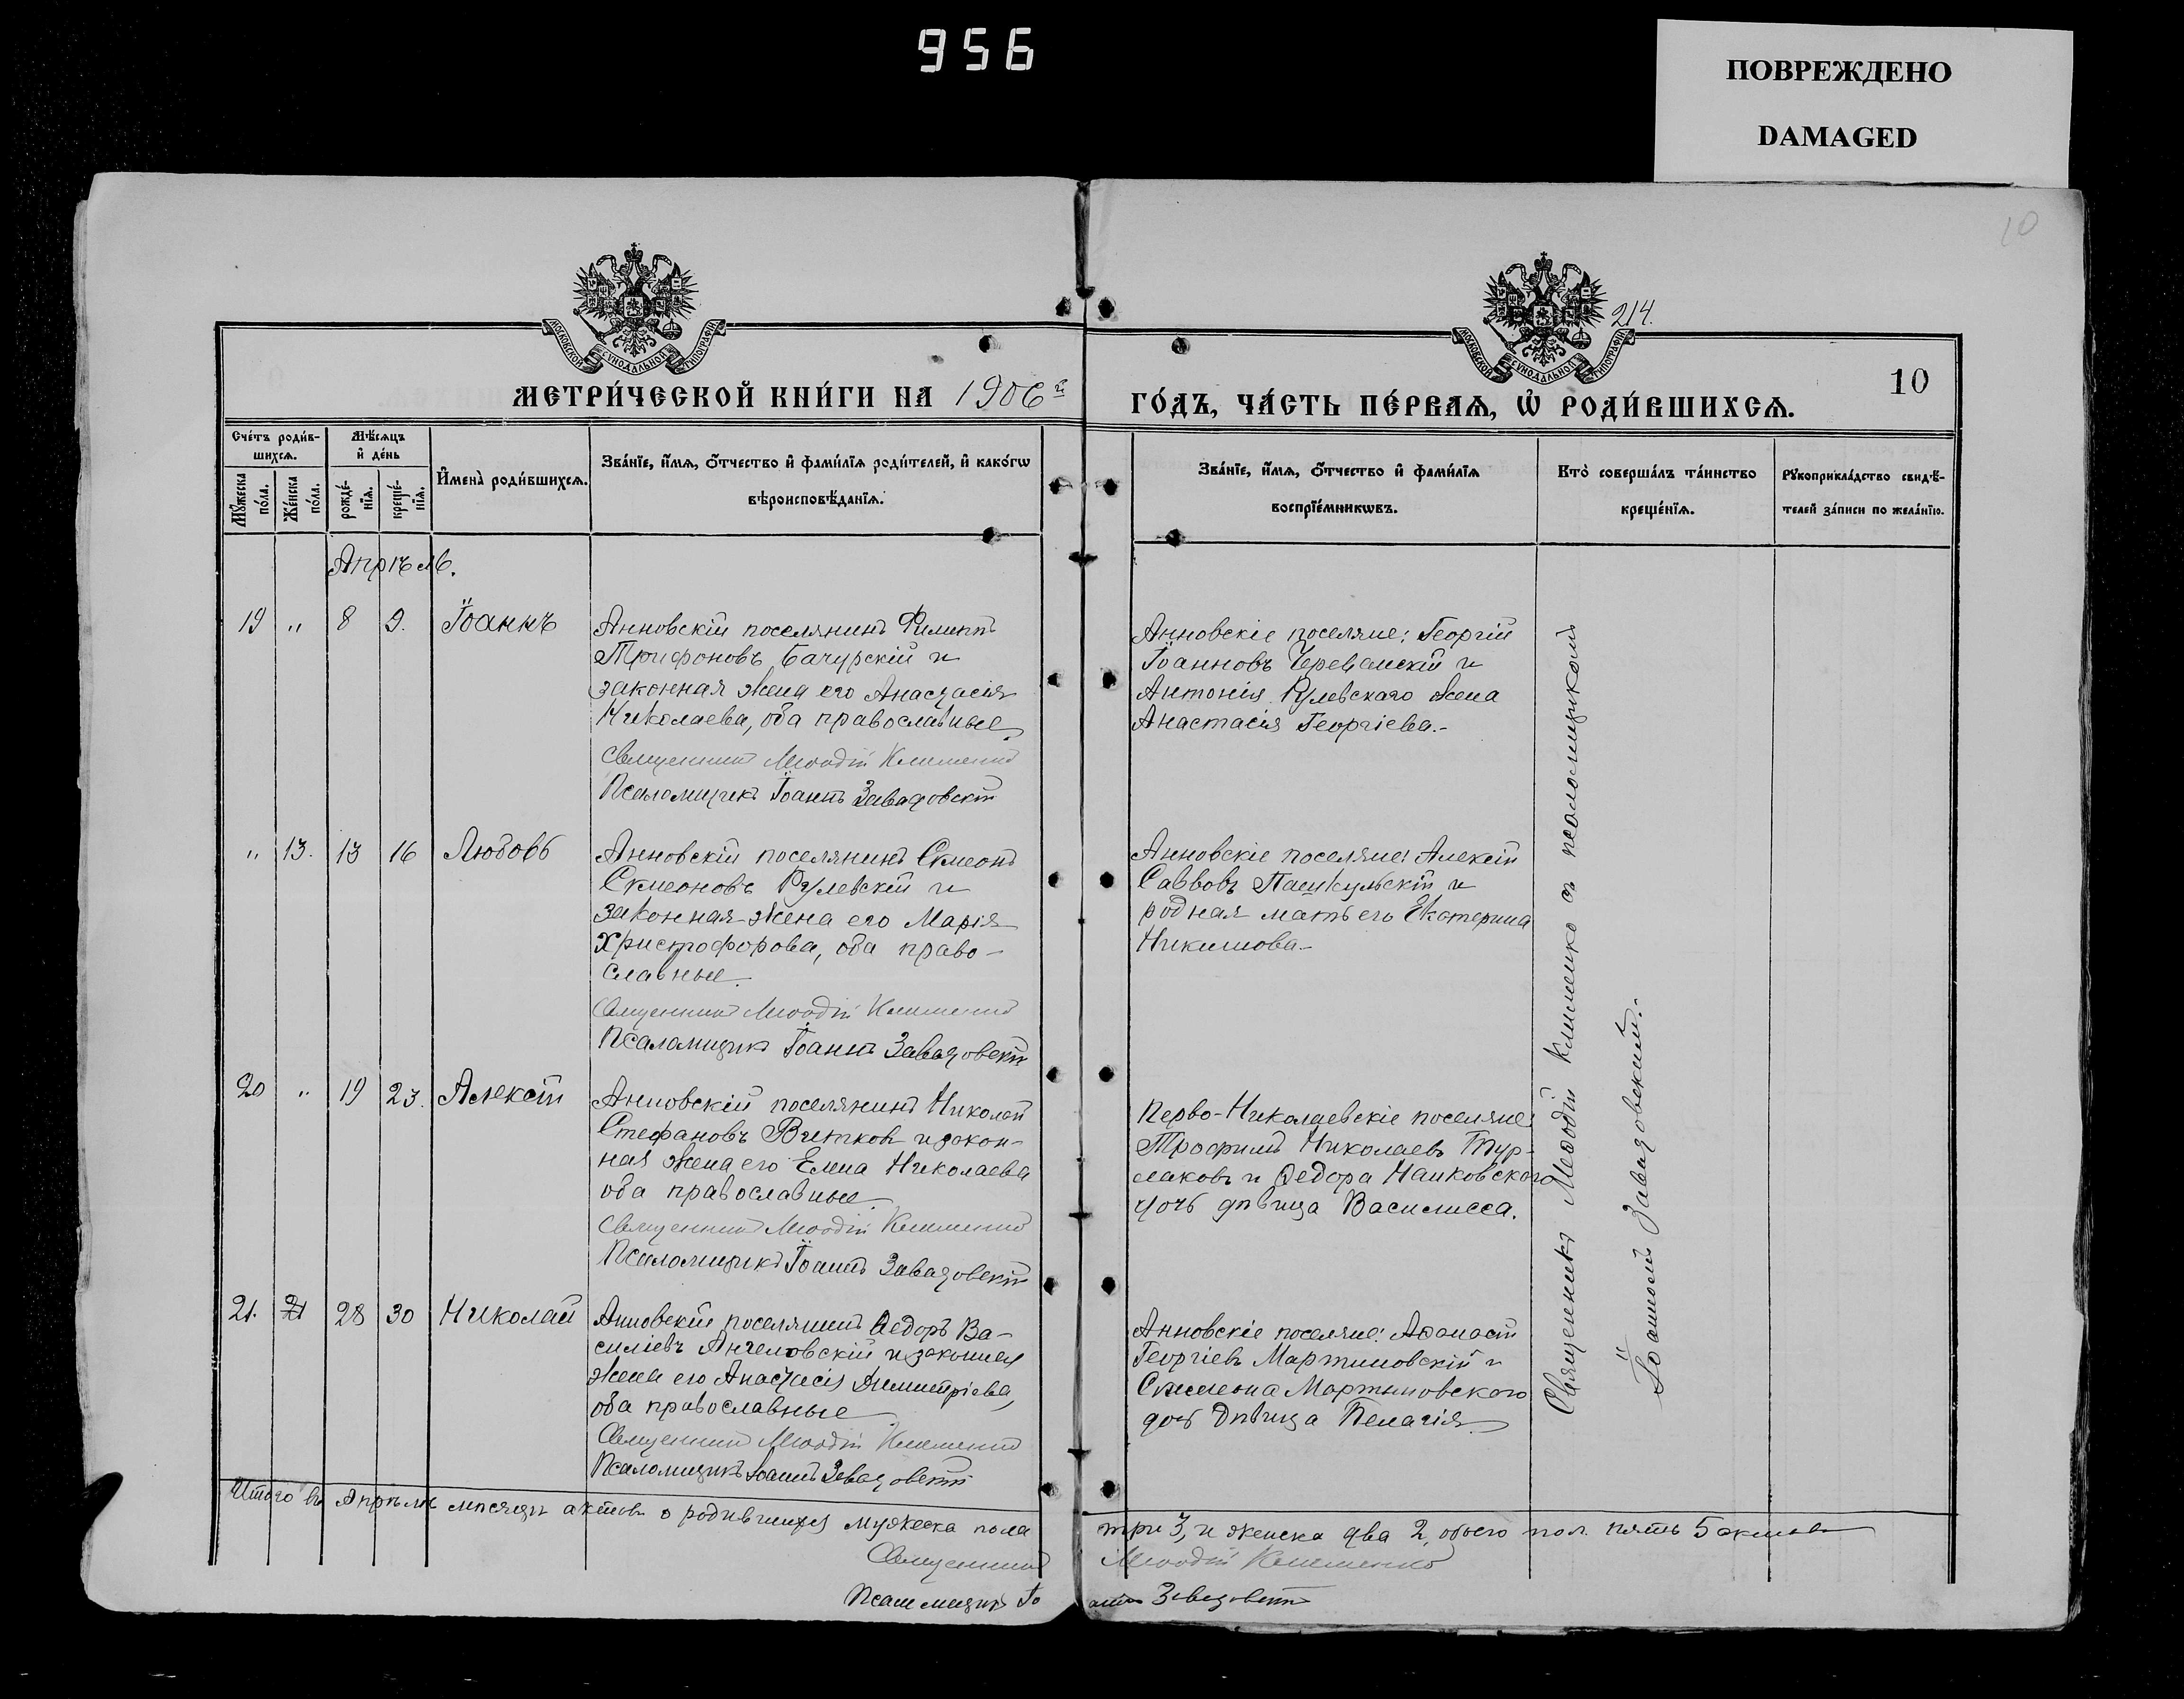 956
ПОВРЕЖДЕНО
DAMAGED
10
214.
МОСКОВСКОЙ СѴНОДАЛЬНОЙ ТИПОГРАФІИ
МОСКОВСКОЙ СѴНОДАЛЬНОЙ ТИПОГРАФІИ
МЕТРИ́ЧЕСКОЙ КНИ́ГИ НА 1906й
ГО́ДЪ, ЧА́СТЬ ПЕ́РВАѦ, Ѽ РОДИ́ВШИХСѦ.
10
Сче́тъ роди́в-
шихсѧ.
Мꙋ́жеска по́ла.
Же́нска по́ла.
Мѣ́сѧцъ
и҆ де́нь
рожде́-
нїѧ.
креще́-
нїѧ.
И҆мена̀ роди́вшихсѧ.
Зва́нїе, и҆́мѧ, ѻ҆́тчество и҆ фами́лїѧ роди́телей, и҆ како́гѡ
вѣроисповѣ́данїѧ.
Зва́нїе, и҆́мѧ, ѻ҆́тчество и҆ фами́лїѧ
воспрїе́мникѡвъ.
Кто̀ соверша́лъ та́инство
креще́нїѧ.
Рꙋкоприкла́дство свидѣ́-
телей за́писи по жела́нїю.
Апрѣль.
19 " 8 9. Іоаннъ
Анновскій поселянинъ Филиппъ
Трифоновъ Бачурскій и
законная жена его Анастасія
Николаева, оба православные
Священникъ Меѳодій Клименко
Псаломщикъ Іоаннъ Завадовскій
Анновскіе поселяне: Георгій
Іоанновъ Череванскій и
Антонія Рулевскаго жена
Анастасія Георгіева.-
" 13. 13 16 Любовь
Анновскій поселянинъ Симеонъ
Симеоновъ Рулевскій и
законная жена его Марія
Христофорова, оба право-
славные.
Священникъ Меѳодій Клименко
Псаломщикъ Іоаннъ Завадовскій
Анновскіе поселяне: Алексій
Саввовъ Пашкульскій и
родная мать его Екатерина
20 " 19 23. Алексій
Анновскій поселянинъ Николай
Стефановъ Витковъ и закон-
ная жена его Елена Николаева
оба православные
Священникъ Меѳодій Клименко
Псаломщикъ Іоаннъ Завадовскій
Перво-Николаевскіе поселяне:
Трофимъ Николаевъ Тур-
лаковъ и Ѳедора Чайковскаго
дочь дѣвица Василисса.
21. 21 28 30 Николай
Анновскій поселянинъ Ѳедоръ Ва-
силіевъ Ангеловскій и законная
жена его Анастасія Димитріева,
оба православные
Священникъ Меѳодій Клименко
Псаломщикъ Іоаннъ Завадовскій
Анновскіе поселяне: Аѳанасій
Георгіевъ Мартиновскій и
Симеона Мартиновскаго
дочь дѣвица Пелагія
Священникъ Меѳодій Клименко съ псаломщикомъ
Іоанномъ Завадовскимъ.
Итого въ Апрѣлѣ мѣсяцѣ актовъ о родившихся мужеска пола три 3, и женска два 2, обоего пол. пять 5 актовъ
Священникъ Меѳодій Клименко
Псаломщикъ Іоаннъ Завадовскій